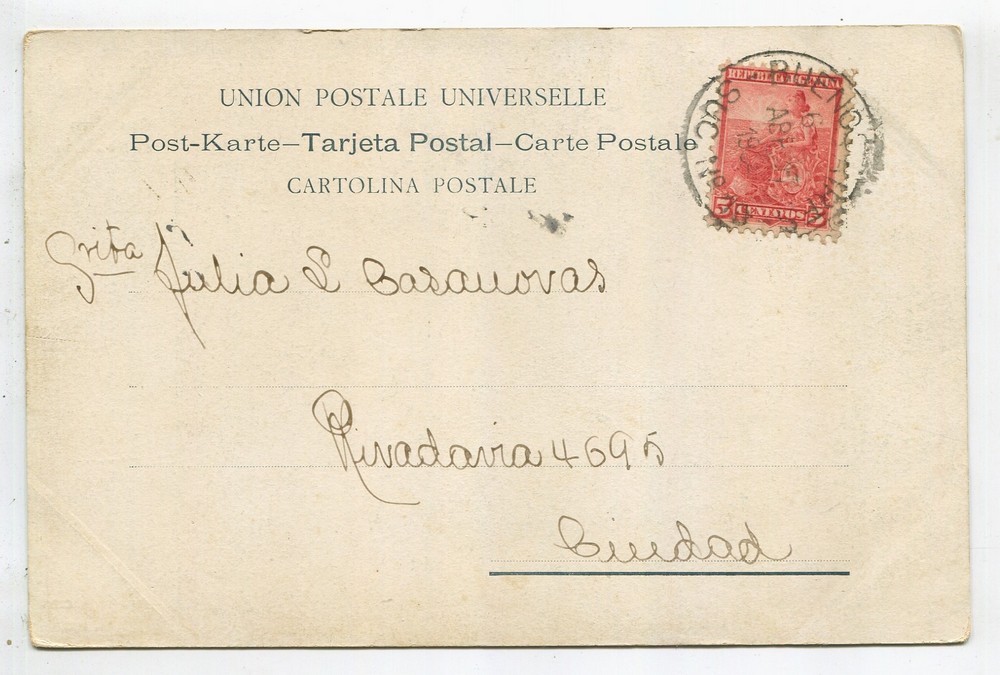 UNION POSTALE UNIVERSELLE
Post-Karte—Tarjeta Postal—Carte Postale
CARTOLINA POSTALE
REPUBLICA ARGENTINA
5 CENTAVOS 5
BUENOS
6
ABR
SUC Nº
Srita Julia S Casanovas
Rivadavia 4695
Ciudad